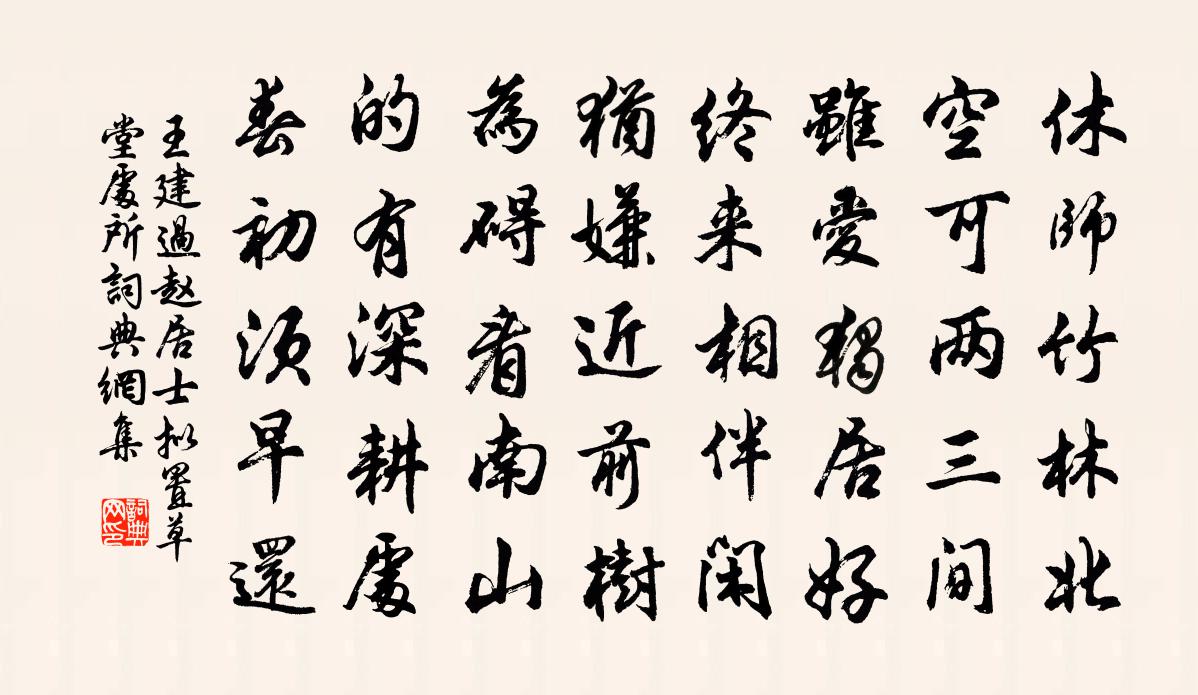 休師竹林北
空可两三间
雖愛獨居好
終来相伴闲
猶嫌近前樹
為碍看南山
的有深耕處
春初须早還
王建過赵居士拟置草
堂處所詞典網集
詞典
网印